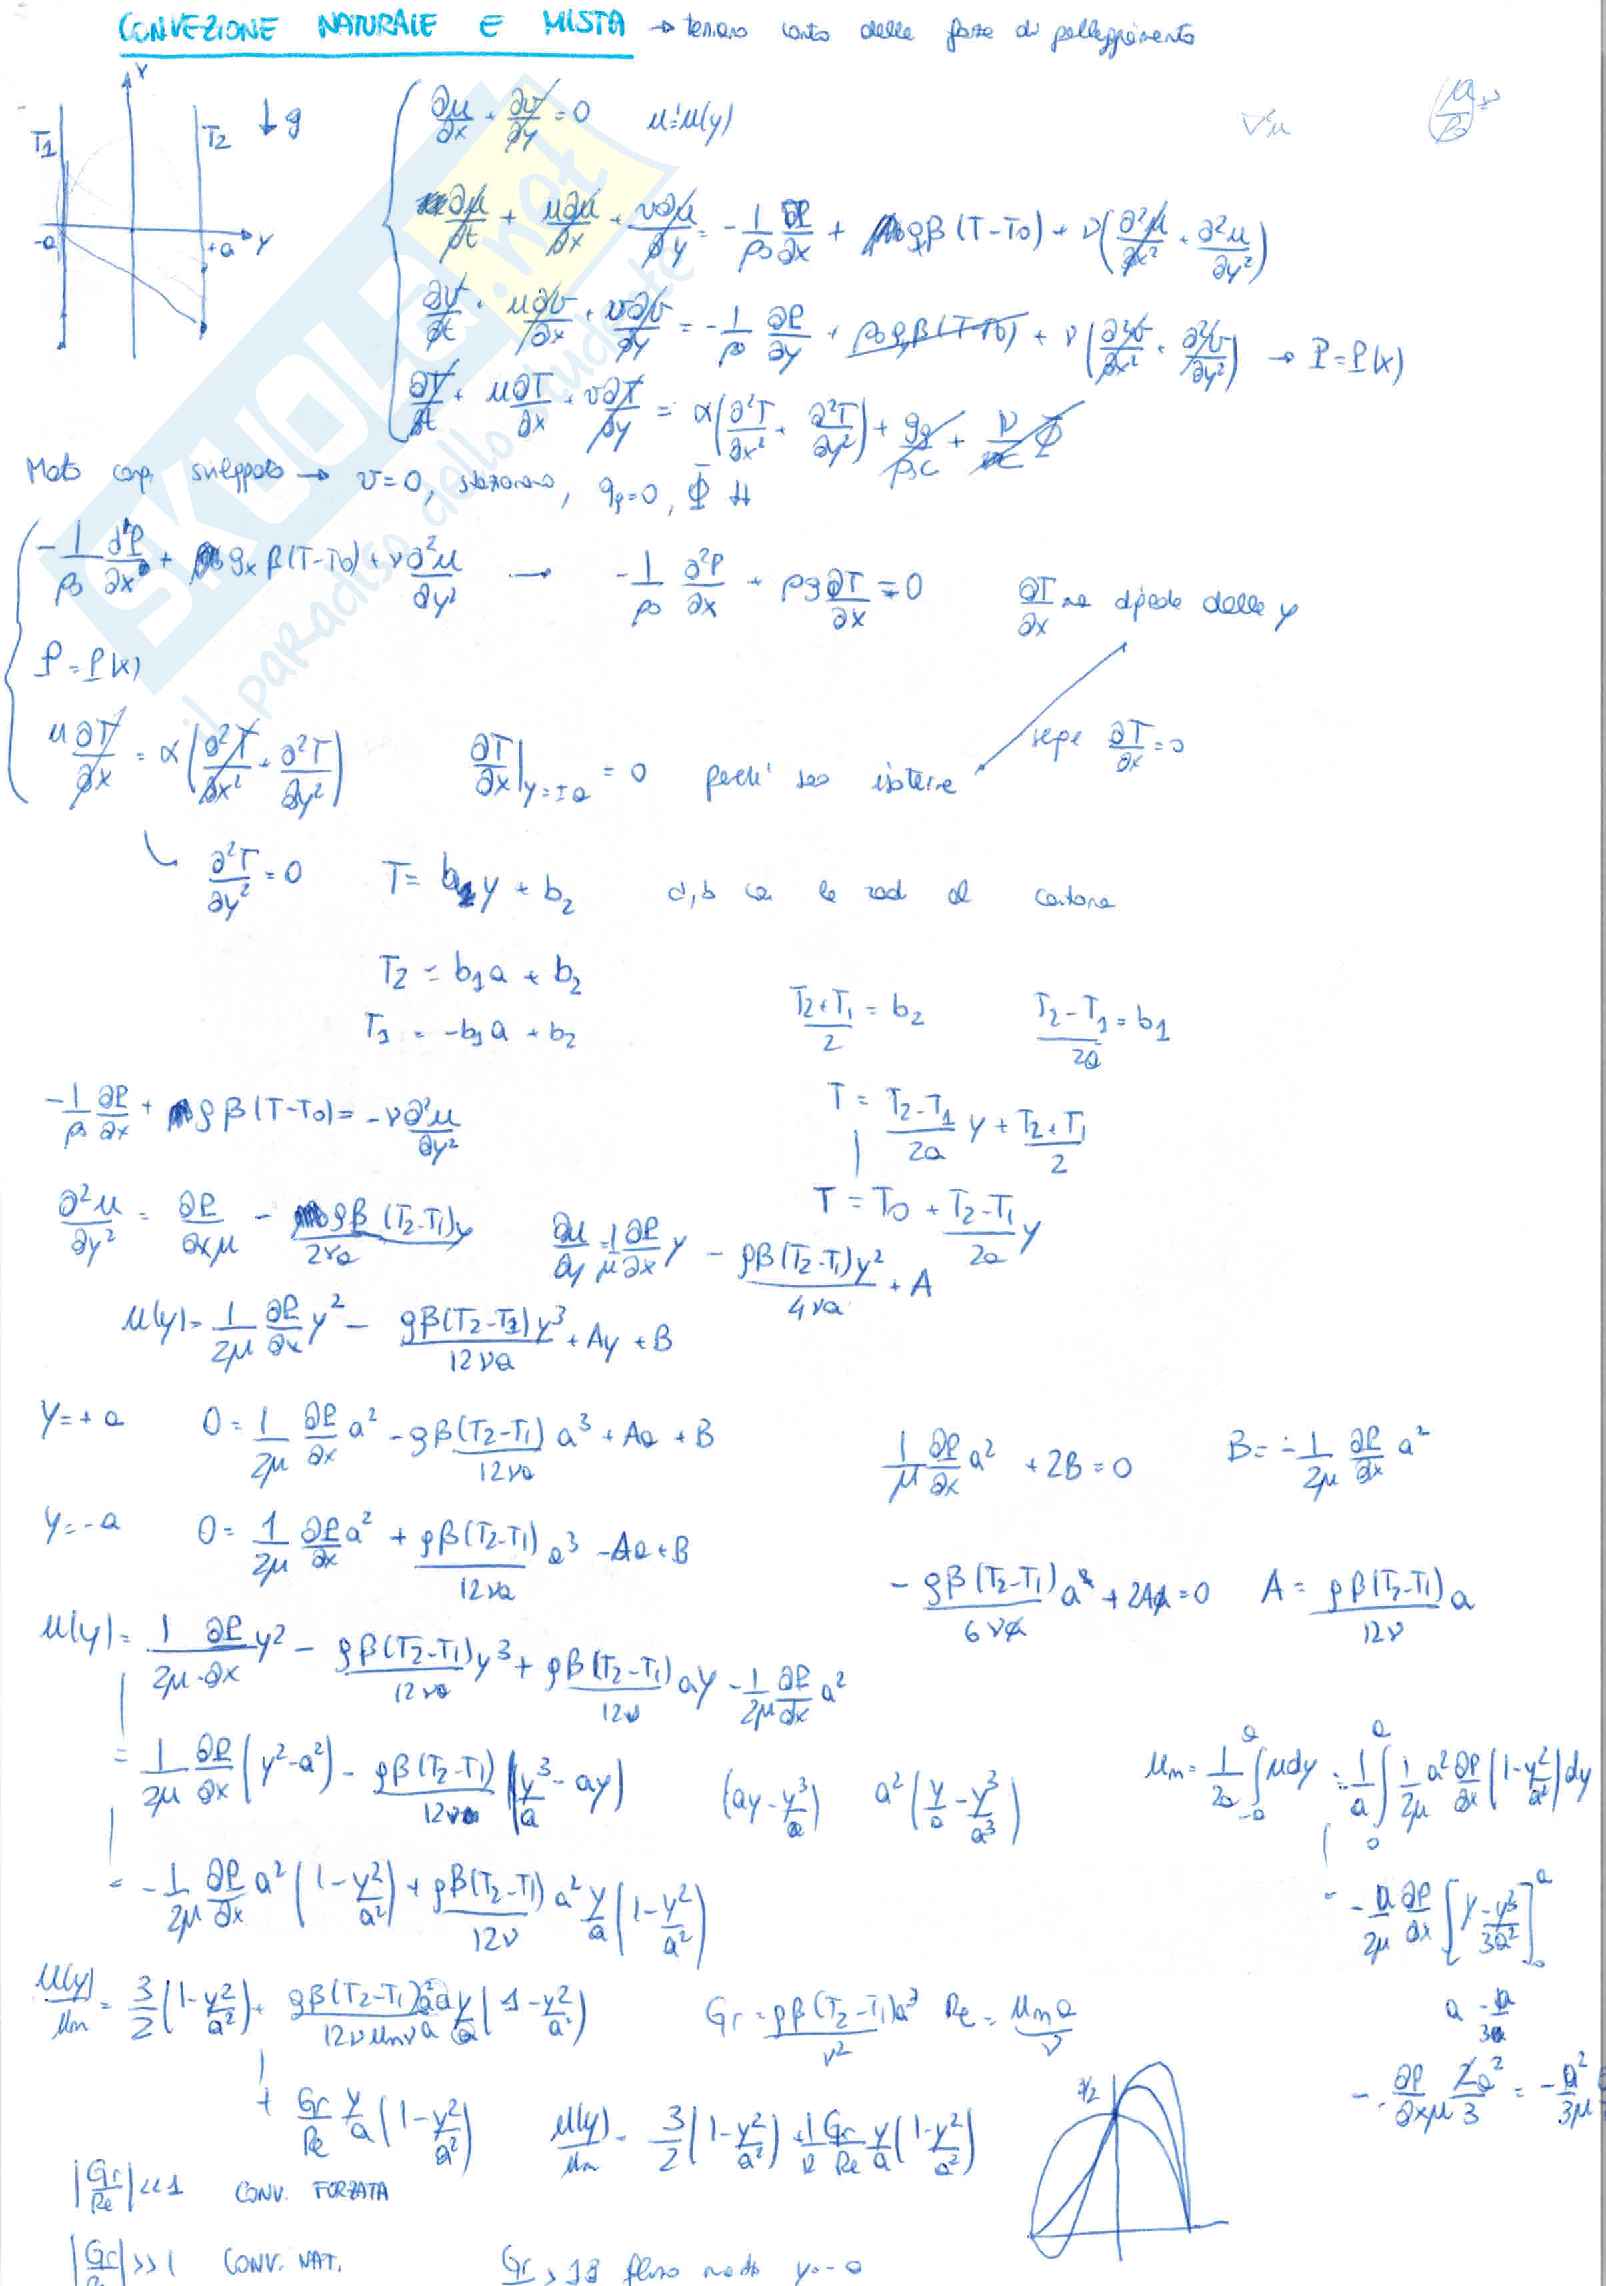 CONVEZIONE NATURALE E MISTA → teniamo conto delle forze di galleggiamento
Y
T1 T2 ↓g
-a +a Y
∂u/∂x + ∂v/∂y = 0 u=u(y)
∂u/∂t + u∂u/∂x + v∂u/∂y = -1/ρ0 ∂P/∂x + gβ(T-T0) + ν(∂²u/∂x² + ∂²u/∂y²)
∂v/∂t + u∂v/∂x + v∂v/∂y = -1/ρ0 ∂P/∂y + ρ0gβ(T-T0) + ν(∂²v/∂x² + ∂²v/∂y²) → P=P(x)
∂T/∂t + u∂T/∂x + v∂T/∂y = α(∂²T/∂x² + ∂²T/∂y²) + qg/ρ0c + ν/c Φ
Moto comp. sviluppato → v=0, stazionario, qg=0, Φ
-1/ρ0 ∂P/∂x + gx β(T-T0) + ν∂²u/∂y² → -1/ρ0 ∂²P/∂x + βg∂T/∂x = 0 ∂T/∂x non dipende dalle y
P=P(x)
u∂T/∂x = α(∂²T/∂x² + ∂²T/∂y²) ∂T/∂x|y=±a = 0 perché sono isoterme ∂T/∂x=0
∂²T/∂y² = 0 T= b1y + b2
T2 = b1a + b2
T1 = -b1a + b2
T2+T1/2 = b2 T2-T1/2a = b1
-1/ρ0 ∂P/∂x + gβ(T-T0) = -ν∂²u/∂y² T = T2-T1/2a y + T2+T1/2
∂²u/∂y² = ∂P/∂xμ - gβ(T2-T1)y/2νa ∂u/∂y = 1/μ ∂P/∂x y - gβ(T2-T1)y²/4νa + A T = T0 + T2-T1/2a y
u(y) = 1/2μ ∂P/∂x y² - gβ(T2-T1)y³/12νa + Ay + B
y=+a 0 = 1/2μ ∂P/∂x a² - gβ(T2-T1)/12νa a³ + Aa + B
1/μ ∂P/∂x a² + 2B = 0 B = -1/2μ ∂P/∂x a²
y=-a 0 = 1/2μ ∂P/∂x a² + gβ(T2-T1)/12νa a³ - Aa + B
-gβ(T2-T1)/6νa a³ + 2Aa = 0 A = gβ(T2-T1)/12ν a
u(y) = 1/2μ ∂P/∂x y² - gβ(T2-T1)/12νa y³ + gβ(T2-T1)/12ν ay - 1/2μ ∂P/∂x a²
= 1/2μ ∂P/∂x (y²-a²) - gβ(T2-T1)/12ν (y³/a - ay) (ay - y³/a) a²(y/a - y³/a³)
= -1/2μ ∂P/∂x a²(1-y²/a²) + gβ(T2-T1)/12ν a² y/a (1-y²/a²)
um = 1/2a ∫-a^a u dy = -1/a ∫0^a 1/2μ a² ∂P/∂x (1-y²/a²) dy
= -a/2μ ∂P/∂x [y - y³/3a²]0^a
a - a/3
u(y)/um = 3/2 (1-y²/a²) + gβ(T2-T1)a²a/12ν um ν a y/a (1-y²/a²) Gr = gβ(T2-T1)a³/ν² Re = um a/ν
+ Gr/Re y/a (1-y²/a²) u(y)/um = 3/2 (1-y²/a²) + 1/12 Gr/Re y/a (1-y²/a²)
3/2
|Gr/Re| <<1 CONV. FORZATA
|Gr/Re| >>1 CONV. NAT.
Gr > 18 y=-a
SKUOLA.net
il paradiso dello studente